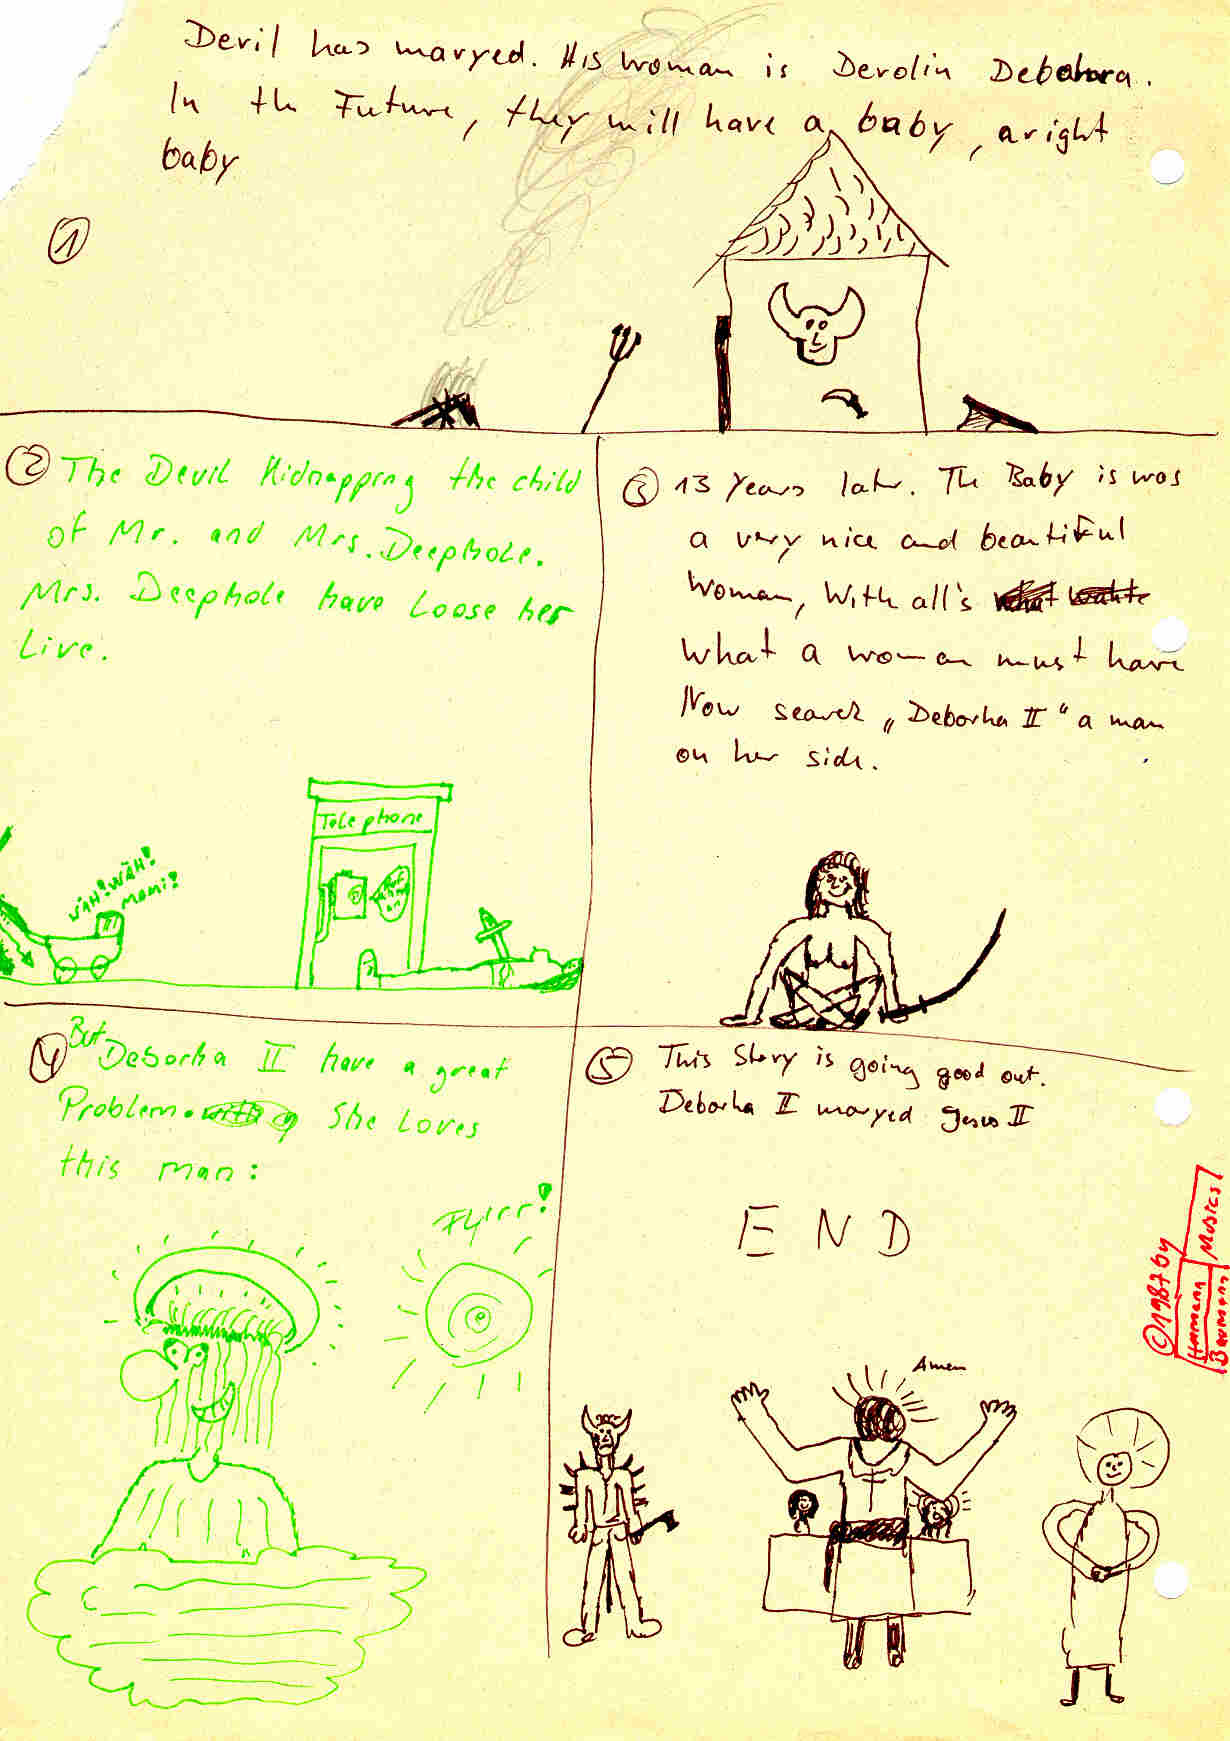 Devil has maryed. His woman is Devolin Debohra.
In the Future, they will have a baby, a right
baby
1
2 The Devil Kidnapping the child
of Mr. and Mrs. Deephole.
Mrs. Deephole have Loose her
Live.
WÄH! WÄH!
MOMI!
Telephone
3 13 Years later. The Baby is was
a very nice and beautiful
Woman, With all's
what a woman must have
Now search „Deborha II“ a man
on her side.
4 But Deborha II have a great
Problem. She Loves
this man:
Flirr!
5 This Story is going good out.
Deborha II maryed Jesus II
END
Amen
© 1987 by
Hammann
Baumann
Musics